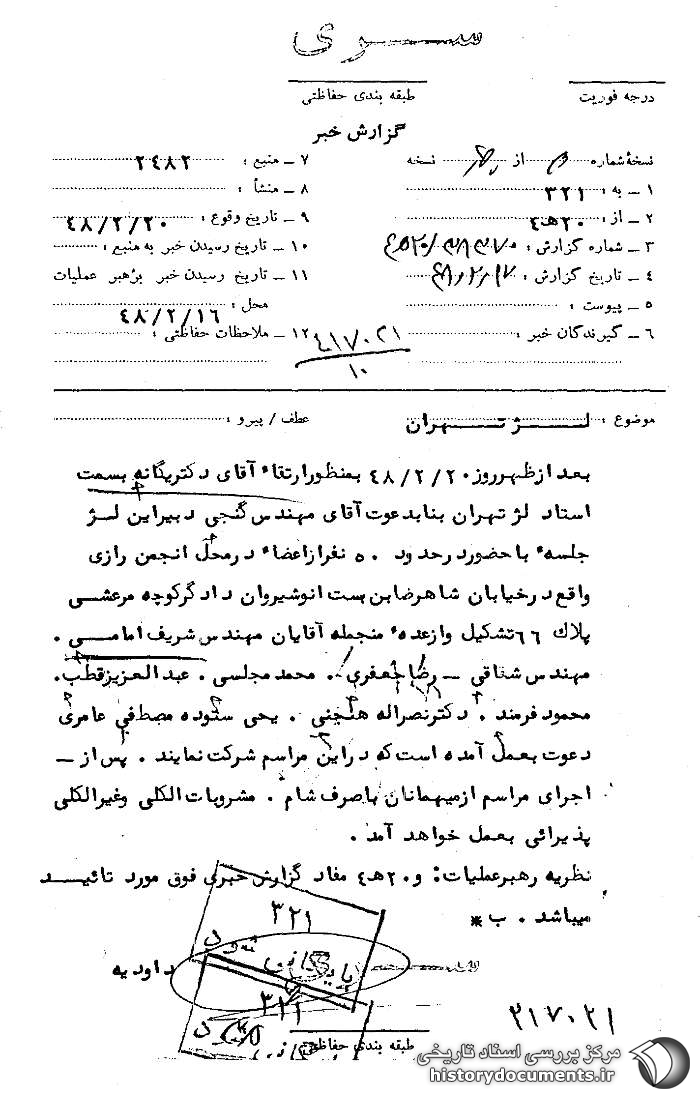 ســـری
درجه فوریت
طبقه بندی حفاظتی
گزارش خبر
نسخهٔ شماره از نسخه
۱ ـ به : ۳۲۱
۲ ـ از : ۲۰ هـ ٤
۳ ـ شماره گزارش :
٤ ـ تاریخ گزارش : ۴۸٫۲٫۱۷
٥ ـ پیوست :
٦ ـ گیرندگان خبر :
۷ ـ منبع : ۲٤۸۲
۸ ـ منشأ :
۹ ـ تاریخ وقوع : ٤۸/۲/۲۰
۱۰ ـ تاریخ رسیدن خبر به منبع :
۱۱ ـ تاریخ رسیدن خبر برهبر عملیات
محل : ٤۸/۲/۱٦
۱۲ ـ ملاحظات حفاظتی :
۴۱۷۰۲۱
۱۰
موضوع : لــژ تــهران
عطف / پیرو :
بعد از ظهر روز ٤۸/۲/۲۰ بمنظور ارتقاء آقای دکتر یگانه بسمت
استاد لژ تهران بنا بدعوت آقای مهندس گنجی دبیر این لـژ
جلسه‌ء با حضور در حدود ۵۰ نفر از اعضاء در محل انجمن رازی
واقع در خیابان شاهرضا بن بست انوشیروان دادگر کوچه مرعشی
پلاك ٦٦ تشکیل و از عده‌ء منجمله آقایان مهندس شریف امامــی .
مهندس شقاقی ـ رضا جعفری . محمد مجلسی . عبدالعزیز قطب .
محمود فرمند . دکتر نصراله هنجنی . یحی ستوده مصطفی عامری
دعوت بعمل آمده است که در این مراسم شرکت نمایند . پس از ـ
اجرای مراسم از میهمانان با صرف شام . مشروبات الکلی وغیرالکلی
پذیرائی بعمل خواهد آمد .
نظریه رهبر عملیات: و ۲۰ هـ ٤ مفاد گزارش خبری فوق مورد تائیــد
میباشد . ب *
۳۲۱
بایگانی شود
داودیه
۳۲۱
۲۱۷۰۲۱
طبقه بندی حفاظتی
مرکز بررسی اسناد تاریخی
historydocuments.ir